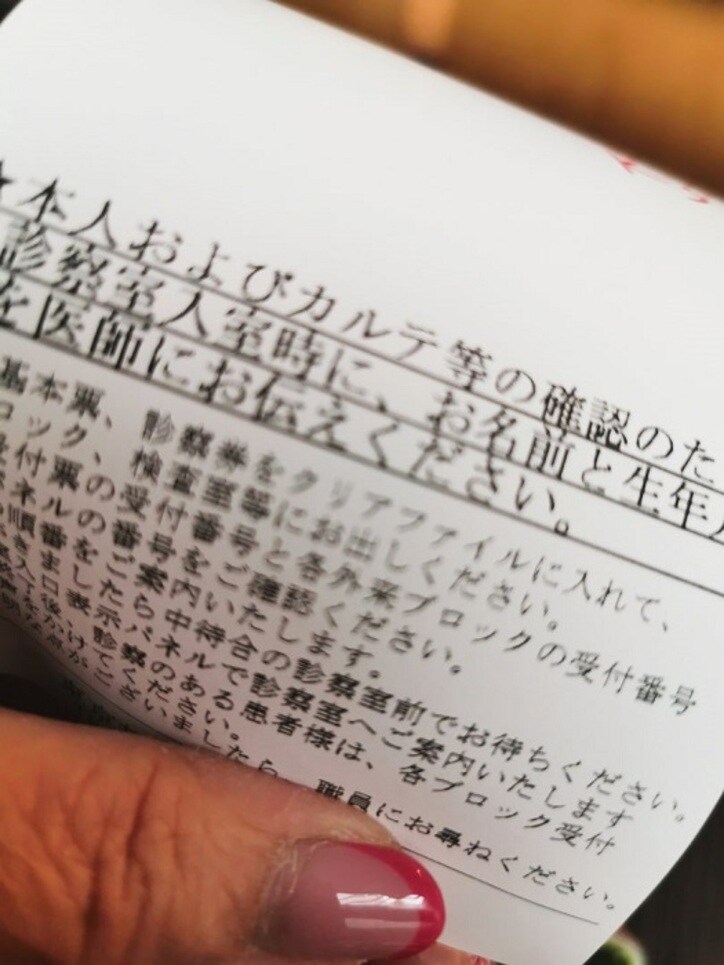 本人およびカルテ等の確認のた
診察室入室時に、お名前と生年
を医師にお伝えください。
基本票、診察券をクリアファイルに入れて、
ロック、検査室等にお出しください。
受付票の受付番号と各外来ブロックの受付番号
ネルの番号をご確認ください。
順番をご案内いたします。
きましたら中待合の診察室前でお待ちください。
入口表示パネルで診察室へご案内いたします
後、診察のある患者様は、各ブロック受付
をかけてください。
な点がございましたら、職員にお尋ねください。